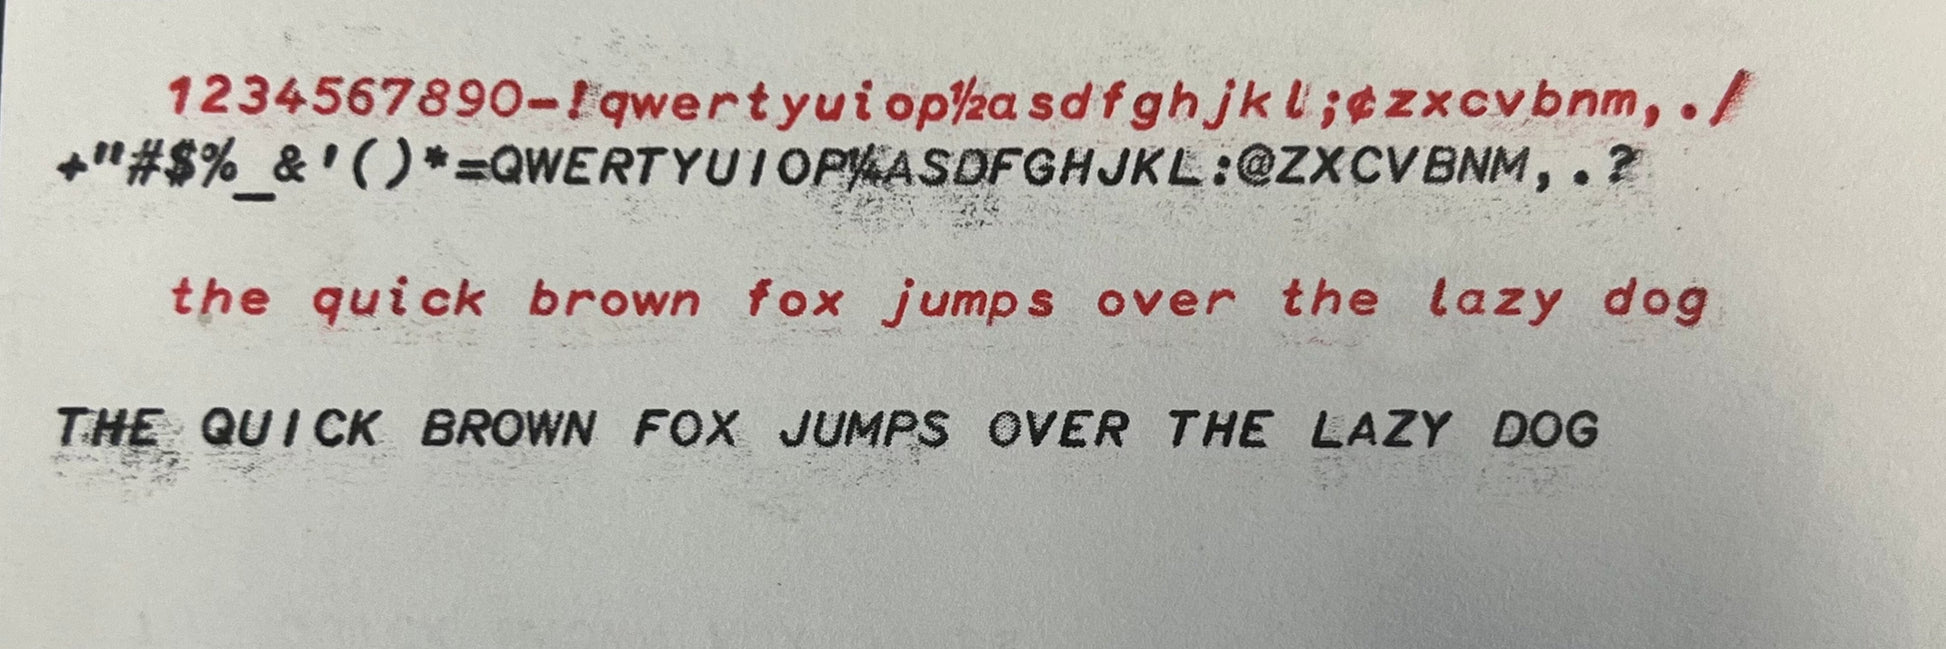 1234567890-!qwertyuiop½asdfghjkl;¢zxcvbnm,./
+"#$%_&'()*=QWERTYUIOP¼ASDFGHJKL:@ZXCVBNM,.?
the quick brown fox jumps over the lazy dog
THE QUICK BROWN FOX JUMPS OVER THE LAZY DOG